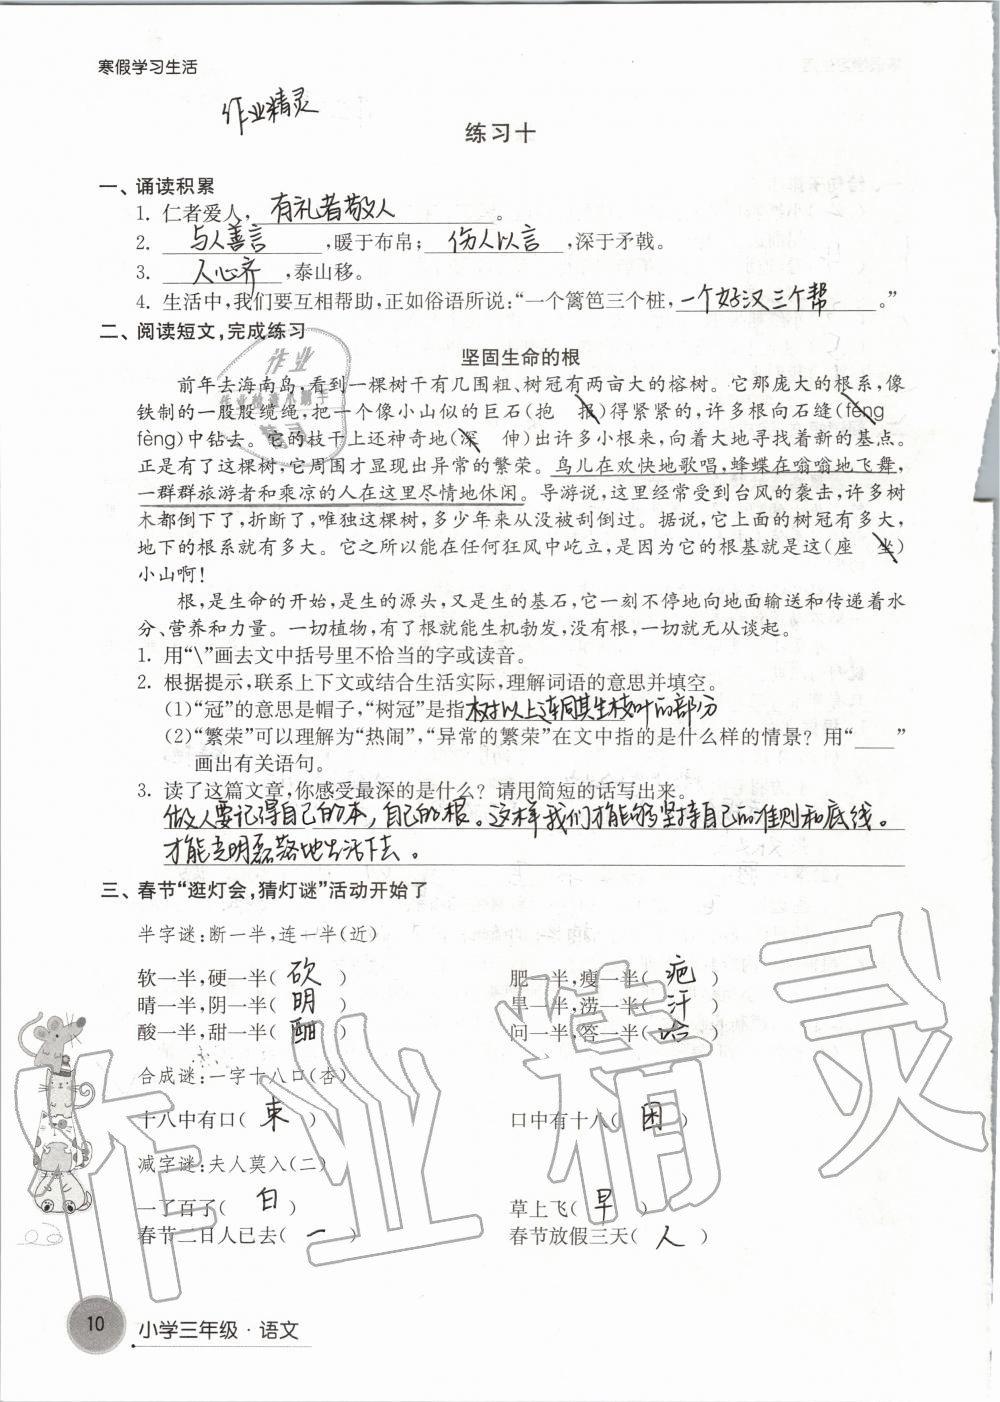 寒假学习生活
作业精灵
练习十
一、诵读积累
1. 仁者爱人，有礼者敬人。
2. 与人善言，暖于布帛；伤人以言，深于矛戟。
3. 人心齐，泰山移。
4. 生活中，我们要互相帮助，正如俗语所说：“一个篱笆三个桩，一个好汉三个帮。”
二、阅读短文，完成练习
坚固生命的根
前年去海南岛，看到一棵树干有几围粗、树冠有两亩大的榕树。它那庞大的根系，像
铁制的一股股缆绳，把一个像小山似的巨石（抱 报）得紧紧的，许多根向石缝（féng
fèng）中钻去。它的枝干上还神奇地（深 伸）出许多小根来，向着大地寻找着新的基点。
正是有了这棵树，它周围才显现出异常的繁荣。鸟儿在欢快地歌唱，蜂蝶在嗡嗡地飞舞，
一群群旅游者和乘凉的人在这里尽情地休闲。导游说，这里经常受到台风的袭击，许多树
木都倒下了，折断了，唯独这棵树，多少年来从没被刮倒过。据说，它上面的树冠有多大，
地下的根系就有多大。它之所以能在任何狂风中屹立，是因为它的根基就是这（座 坐）
小山啊！
根，是生命的开始，是生的源头，又是生的基石，它一刻不停地向地面输送和传递着水
分、营养和力量。一切植物，有了根就能生机勃发，没有根，一切就无从谈起。
1. 用“\”画去文中括号里不恰当的字或读音。
2. 根据提示，联系上下文或结合生活实际，理解词语的意思并填空。
(1)“冠”的意思是帽子，“树冠”是指树以上连同其生枝叶的部分
(2)“繁荣”可以理解为“热闹”，“异常的繁荣”在文中指的是什么样的情景？用“____”
画出有关语句。
3. 读了这篇文章，你感受最深的是什么？请用简短的话写出来。
做人要记得自己的本，自己的根。这样我们才能够坚持自己的准则和底线。
才能光明磊落地生活下去。
三、春节“逛灯会，猜灯谜”活动开始了
半字谜：断一半，连一半（近）
软一半，硬一半（砍） 肥一半，瘦一半（疤）
晴一半，阴一半（明） 旱一半，涝一半（汗）
酸一半，甜一半（酣） 问一半，答一半（哈）
合成谜：一字十八口（杏）
十八中有口（束） 口中有十八（困）
减字谜：夫人莫入（二）
一了百了（白） 草上飞（早）
春节二日人已去（一） 春节放假三天（人）
10
小学三年级·语文
作业精灵